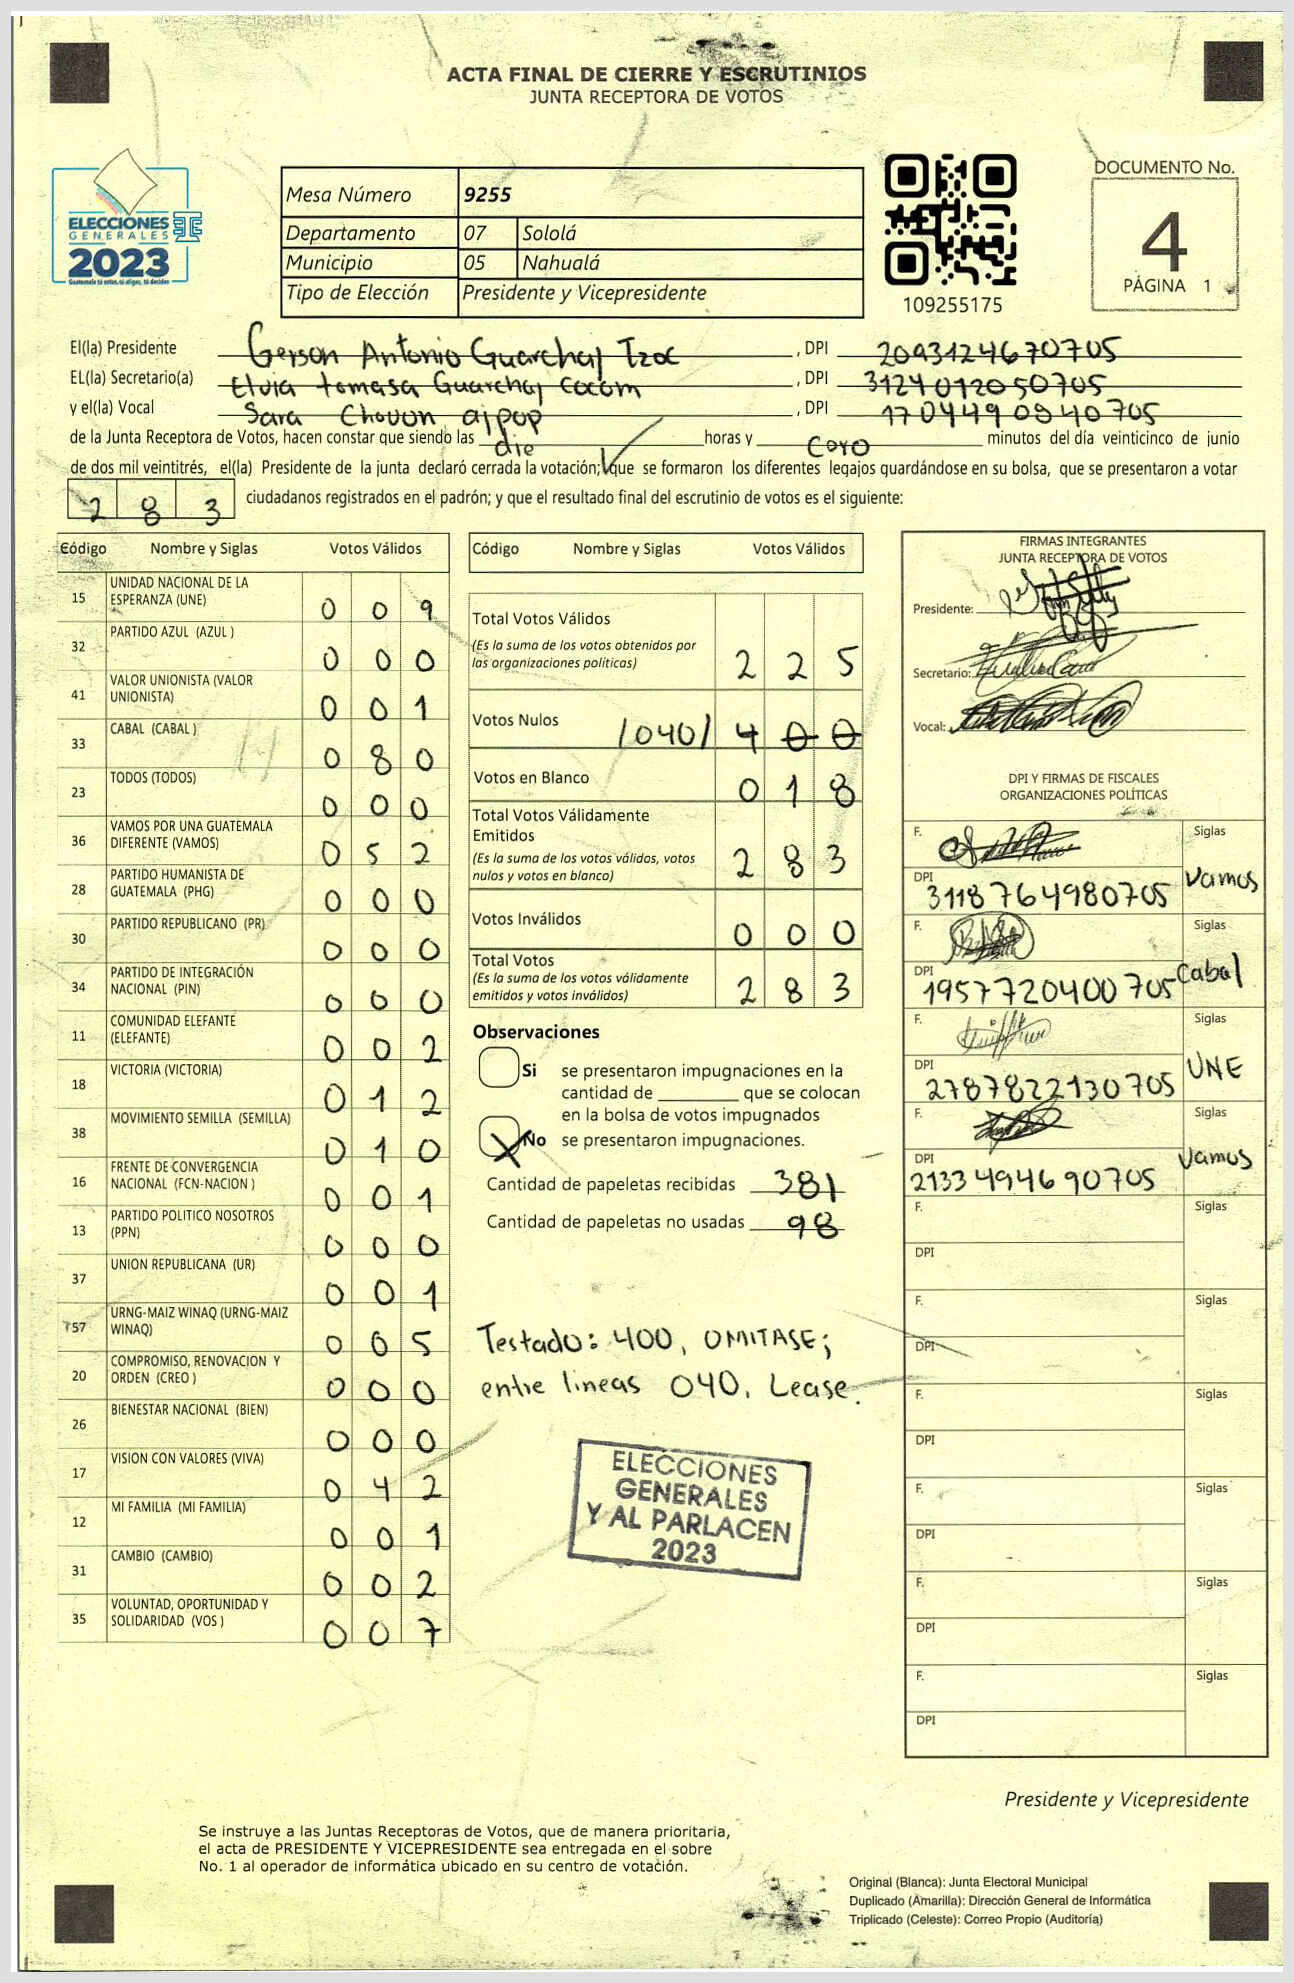 ACTA FINAL DE CIERRE Y ESCRUTINIOS
JUNTA RECEPTORA DE VOTOS
ELECCIONES
GENERALES
2023
Guatemala tú eres, tú eliges, tú decides
Mesa Número 9255
Departamento 07 Sololá
Municipio 05 Nahualá
Tipo de Elección Presidente y Vicepresidente
109255175
DOCUMENTO No.
4
PÁGINA 1
El(la) Presidente Gerson Antonio Guarchaj Tzoc , DPI 2093124670705
EL(la) Secretario(a) Elvia tomasa Guarchaj cocom , DPI 3124012050705
y el(la) Vocal Sara Chovon ajpop , DPI 1704490940705
de la Junta Receptora de Votos, hacen constar que siendo las die horas y cero minutos del día veinticinco de junio
de dos mil veintitrés, el(la) Presidente de la junta declaró cerrada la votación; que se formaron los diferentes legajos guardándose en su bolsa, que se presentaron a votar
283 ciudadanos registrados en el padrón; y que el resultado final del escrutinio de votos es el siguiente:
Código Nombre y Siglas Votos Válidos
15 UNIDAD NACIONAL DE LA ESPERANZA (UNE) 0 0 9
32 PARTIDO AZUL (AZUL ) 0 0 0
41 VALOR UNIONISTA (VALOR UNIONISTA) 0 0 1
33 CABAL (CABAL ) 0 8 0
23 TODOS (TODOS) 0 0 0
36 VAMOS POR UNA GUATEMALA DIFERENTE (VAMOS) 0 5 2
28 PARTIDO HUMANISTA DE GUATEMALA (PHG) 0 0 0
30 PARTIDO REPUBLICANO (PR) 0 0 0
34 PARTIDO DE INTEGRACIÓN NACIONAL (PIN) 0 0 0
11 COMUNIDAD ELEFANTE (ELEFANTE) 0 0 2
18 VICTORIA (VICTORIA) 0 1 2
38 MOVIMIENTO SEMILLA (SEMILLA) 0 1 0
16 FRENTE DE CONVERGENCIA NACIONAL (FCN-NACION ) 0 0 1
13 PARTIDO POLITICO NOSOTROS (PPN) 0 0 0
37 UNION REPUBLICANA (UR) 0 0 1
57 URNG-MAIZ WINAQ (URNG-MAIZ WINAQ) 0 0 5
20 COMPROMISO, RENOVACION Y ORDEN (CREO ) 0 0 0
26 BIENESTAR NACIONAL (BIEN) 0 0 0
17 VISION CON VALORES (VIVA) 0 4 2
12 MI FAMILIA (MI FAMILIA) 0 0 1
31 CAMBIO (CAMBIO) 0 0 2
35 VOLUNTAD, OPORTUNIDAD Y SOLIDARIDAD (VOS ) 0 0 7
Código Nombre y Siglas Votos Válidos
Total Votos Válidos
(Es la suma de los votos obtenidos por
las organizaciones políticas) 2 2 5
Votos Nulos /040/ 4 0 0
Votos en Blanco 0 1 8
Total Votos Válidamente
Emitidos
(Es la suma de los votos válidos, votos
nulos y votos en blanco) 2 8 3
Votos Inválidos 0 0 0
Total Votos
(Es la suma de los votos válidamente
emitidos y votos inválidos) 2 8 3
Observaciones
Si se presentaron impugnaciones en la
cantidad de que se colocan
en la bolsa de votos impugnados
X No se presentaron impugnaciones.
Cantidad de papeletas recibidas 381
Cantidad de papeletas no usadas 98
Testado: 400, OMITASE;
entre lineas 040, Lease.
ELECCIONES
GENERALES
Y AL PARLACEN
2023
FIRMAS INTEGRANTES
JUNTA RECEPTORA DE VOTOS
Presidente:
Secretario:
Vocal:
DPI Y FIRMAS DE FISCALES
ORGANIZACIONES POLÍTICAS
F. Siglas
DPI 3118764980705 Vamos
F. Siglas
DPI 1957720400705 Cabal
F. Siglas
DPI 2787822130705 UNE
F. Siglas
DPI 2133494690705 Vamos
F. Siglas
DPI
F. Siglas
DPI
F. Siglas
DPI
F. Siglas
DPI
F. Siglas
DPI
F. Siglas
DPI
Presidente y Vicepresidente
Se instruye a las Juntas Receptoras de Votos, que de manera prioritaria,
el acta de PRESIDENTE Y VICEPRESIDENTE sea entregada en el sobre
No. 1 al operador de informática ubicado en su centro de votación.
Original (Blanca): Junta Electoral Municipal
Duplicado (Amarilla): Dirección General de Informática
Triplicado (Celeste): Correo Propio (Auditoría)